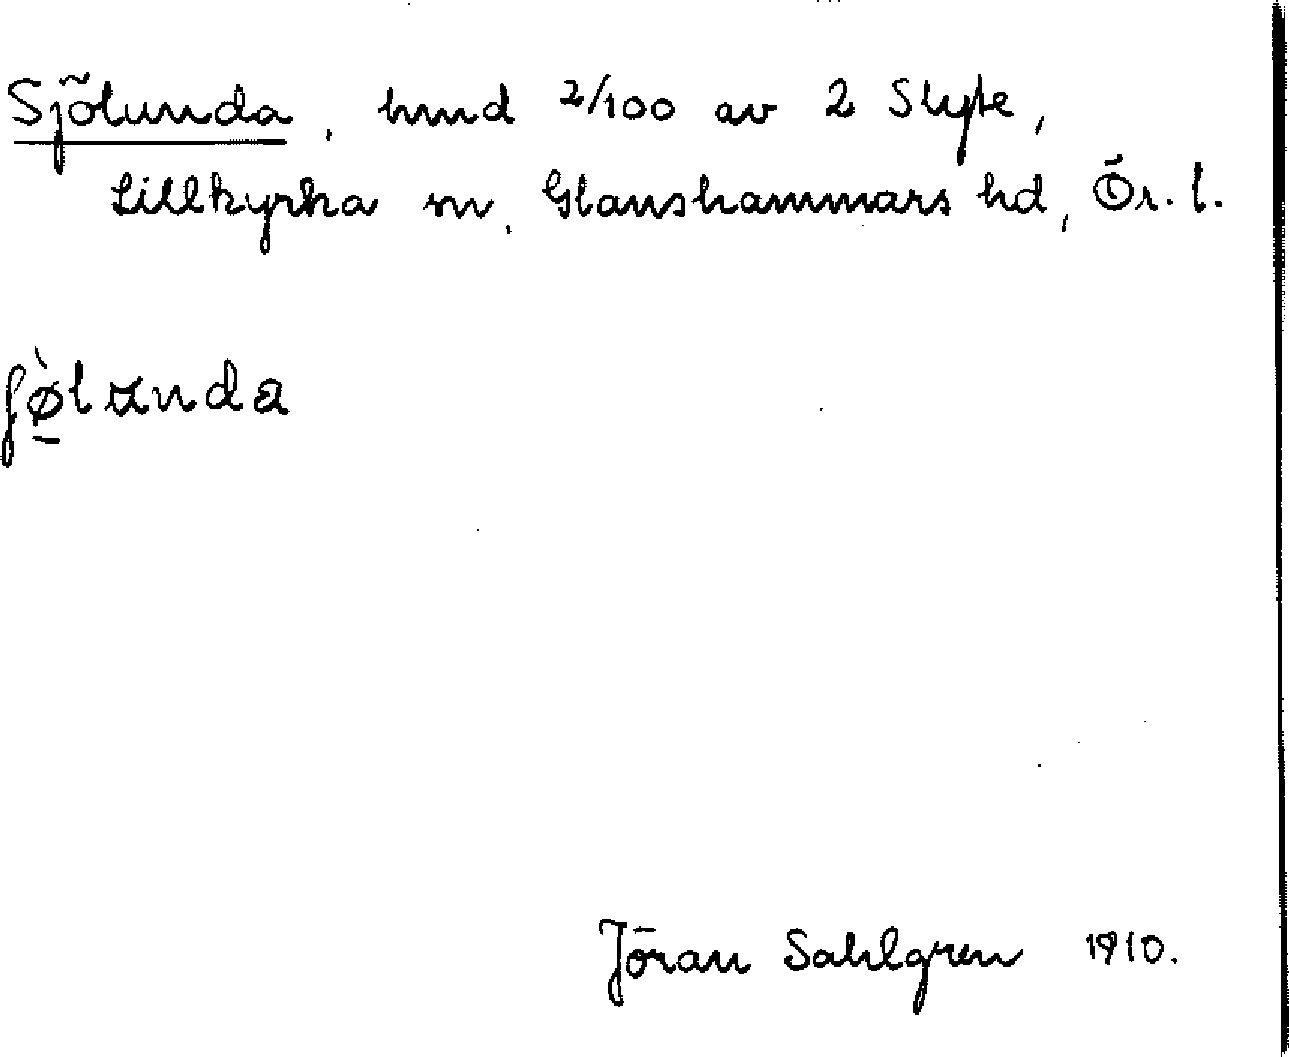 Sjölunda, hmd 2/100 av 2 Slyte,
Lillkyrka sn, Glanshammars hd, Ör. l.
ʃø̠̀lunda
Jöran Sahlgren 1910.